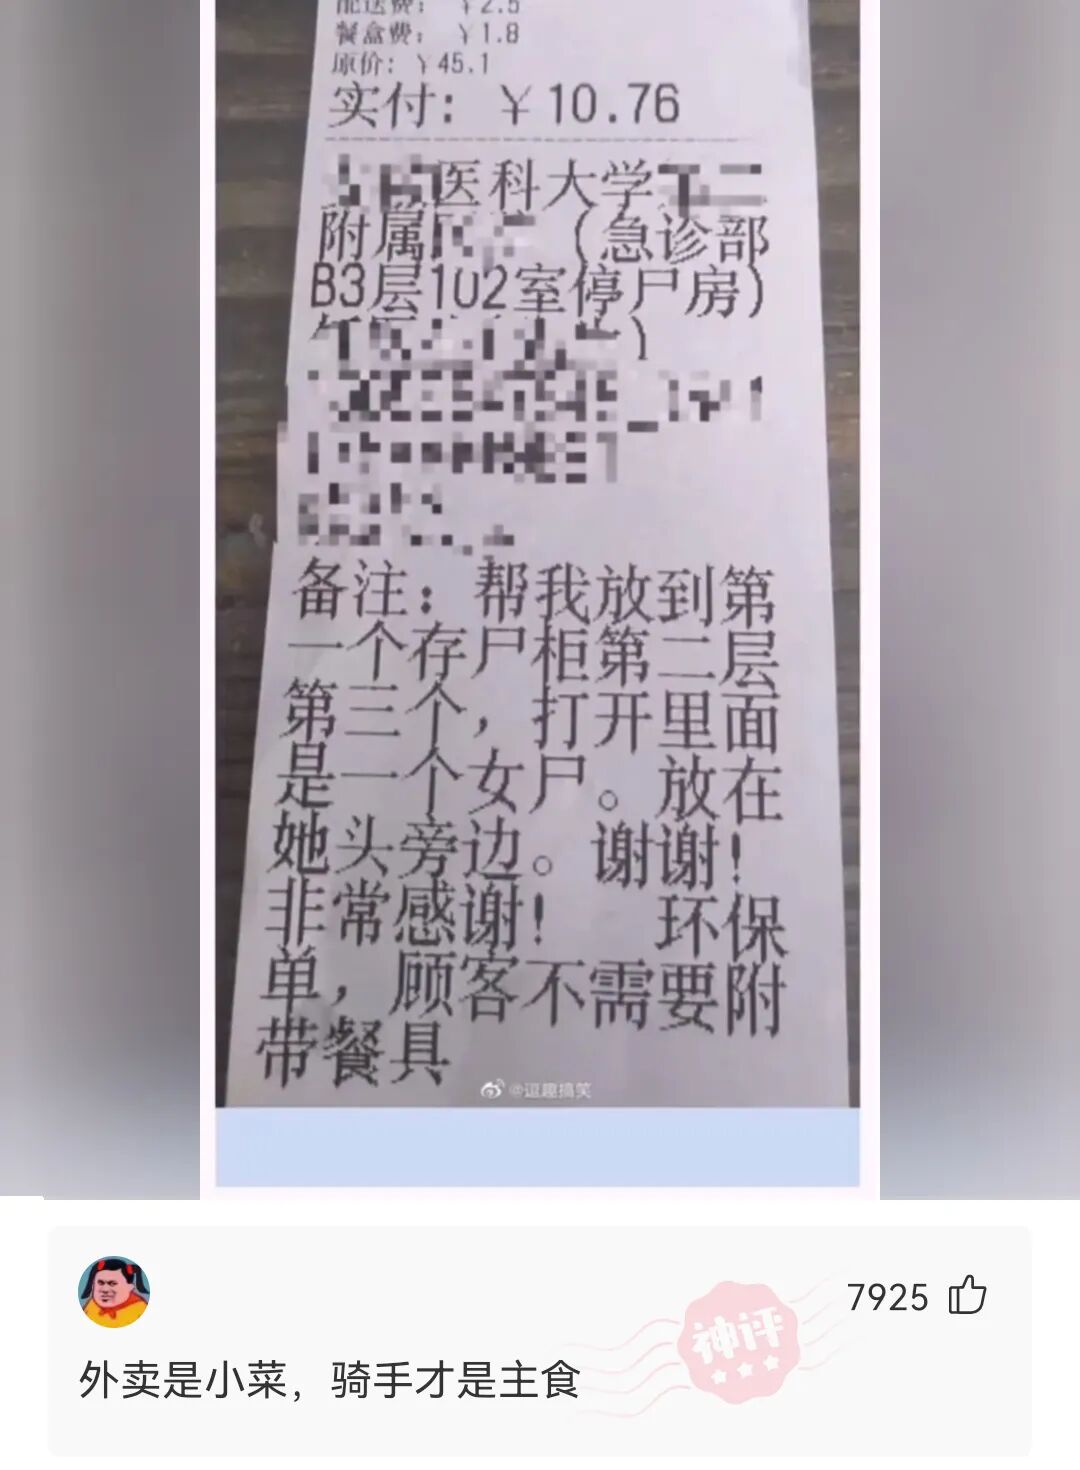 配送费： ￥2.5
餐盒费： ￥1.8
原价：￥45.1
实付：￥10.76
医科大学
附属 （急诊部
B3层102室停尸房）
备注：帮我放到第
一个存尸柜第二层
第三个，打开里面
是一个女尸。放在
她头旁边。谢谢！
非常感谢！ 环保
单，顾客不需要附
带餐具
@逗趣搞笑
7925
神评
外卖是小菜，骑手才是主食